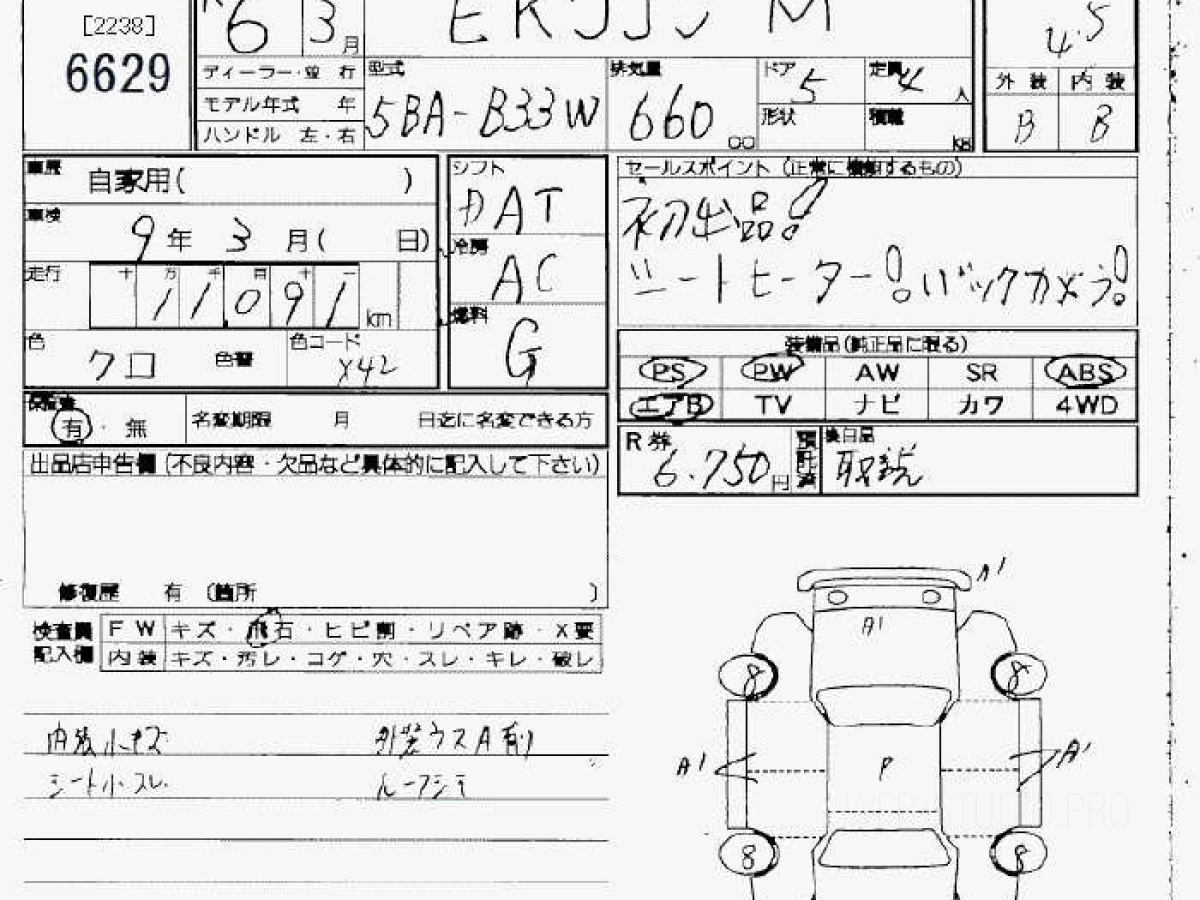 [2238]
6629
6 3月
EKワゴン M
4.5
ディーラー・並行
型式 5BA-B33W
排気量 660 CC
ドア 5
定員 4 人
外装 内装
モデル年式 年
ハンドル 左・右
形状
積載 kg
B B
車歴 自家用( )
シフト
DAT
セールスポイント (正常に機能するもの)
初出品!
シートヒーター! バックカメラ!
車検 9年 3月( 日)
冷房
AC
走行 十 万 千 百 十 一
11091 km
燃料
G
色 クロ 色替 色コード X42
装備品(純正品に限る)
PS PW AW SR ABS
エアB TV ナビ カワ 4WD
保証書 有・無 名変期限 月 日迄に名変できる方
R券 6.750円 預託済 後日品 取説
出品店申告欄 (不良内容・欠品など具体的に記入して下さい)
修復歴 有 (箇所 )
検査員記入欄
FW キズ・飛石・ヒビ割・リペア跡・X要
内装 キズ・汚レ・コゲ・穴・スレ・キレ・破レ
内装小キズ 外装ウスA有
シート小スレ ルーフシミ
A1
A1
8 8
A1 P A1
8 8
WEB STUDIO PRO